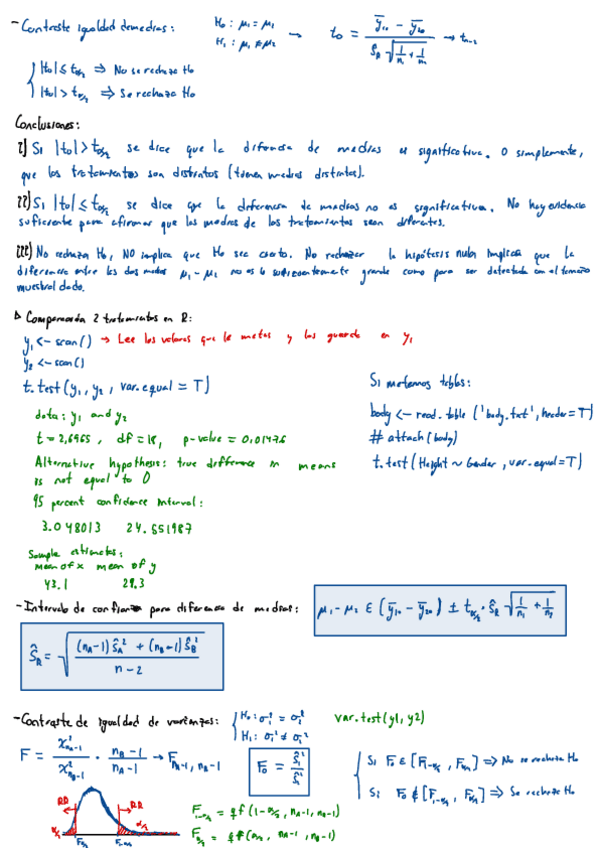 - Contraste igualdad de medias: H₀: μ₁ = μ₂ → t₀ = (ȳ₁₀ − ȳ₂₀) / (Ŝ_R √(1/n₁ + 1/n₂)) → t_{n-2}
H₁: μ₁ ≠ μ₂
|t₀| ≤ t_{α/2} ⇒ No se rechaza H₀
|t₀| > t_{α/2} ⇒ Se rechaza H₀
Conclusiones:
i) Si |t₀| > t_{α/2} se dice que la diferencia de medias es significativa. O simplemente,
que los tratamientos son distintos (tienen medias distintas).
ii) Si |t₀| ≤ t_{α/2} se dice que la diferencia de medias no es significativa. No hay evidencia
suficiente para afirmar que las medias de los tratamientos sean diferentes.
iii) No rechazar H₀, NO implica que H₀ sea cierta. No rechazar la hipótesis nula implica que la
diferencia entre las dos medias μ₁ − μ₂ no es lo suficientemente grande como para ser detectada con el tamaño
muestral dado.
Comparación 2 tratamientos en R:
y₁ <- scan() → Lee los valores que le metas y los guarda en y₁
y₂ <- scan()
t.test(y₁, y₂, var.equal = T)
data: y₁ and y₂
t = 2,6965, df = 18, p-value = 0,01476
Alternative hypothesis: true difference in means
is not equal to 0
95 percent confidence interval:
3.048013 24.551987
Sample estimates:
mean of x mean of y
43.1 29.3
Si metemos tablas:
body <- read.table('body.txt', header=T)
# attach(body)
t.test(Height ~ Gender, var.equal=T)
- Intervalo de confianza para diferencia de medias: μ₁ − μ₂ ∈ (ȳ₁₀ − ȳ₂₀) ± t_{α/2} · Ŝ_R √(1/n₁ + 1/n₂)
Ŝ_R = √(((n_A−1)Ŝ_A² + (n_B−1)Ŝ_B²) / (n−2))
- Contraste de igualdad de varianzas: H₀: σ₁² = σ₂² var.test(y1, y2)
H₁: σ₁² ≠ σ₂²
F = χ²_{n_A−1} / χ²_{n_B−1} · (n_B−1)/(n_A−1) → F_{n_A−1, n_B−1}
F₀ = Ŝ₁² / Ŝ₂²
Si F₀ ∈ [F_{1−α/2}, F_{α/2}] ⇒ No se rechaza H₀
Si F₀ ∉ [F_{1−α/2}, F_{α/2}] ⇒ Se rechaza H₀
RR RR
α/2 α/2
F_{α/2} F_{1−α/2}
F_{1−α/2} = qf(1−α/2, n_A−1, n_B−1)
F_{α/2} = qf(α/2, n_A−1, n_B−1)